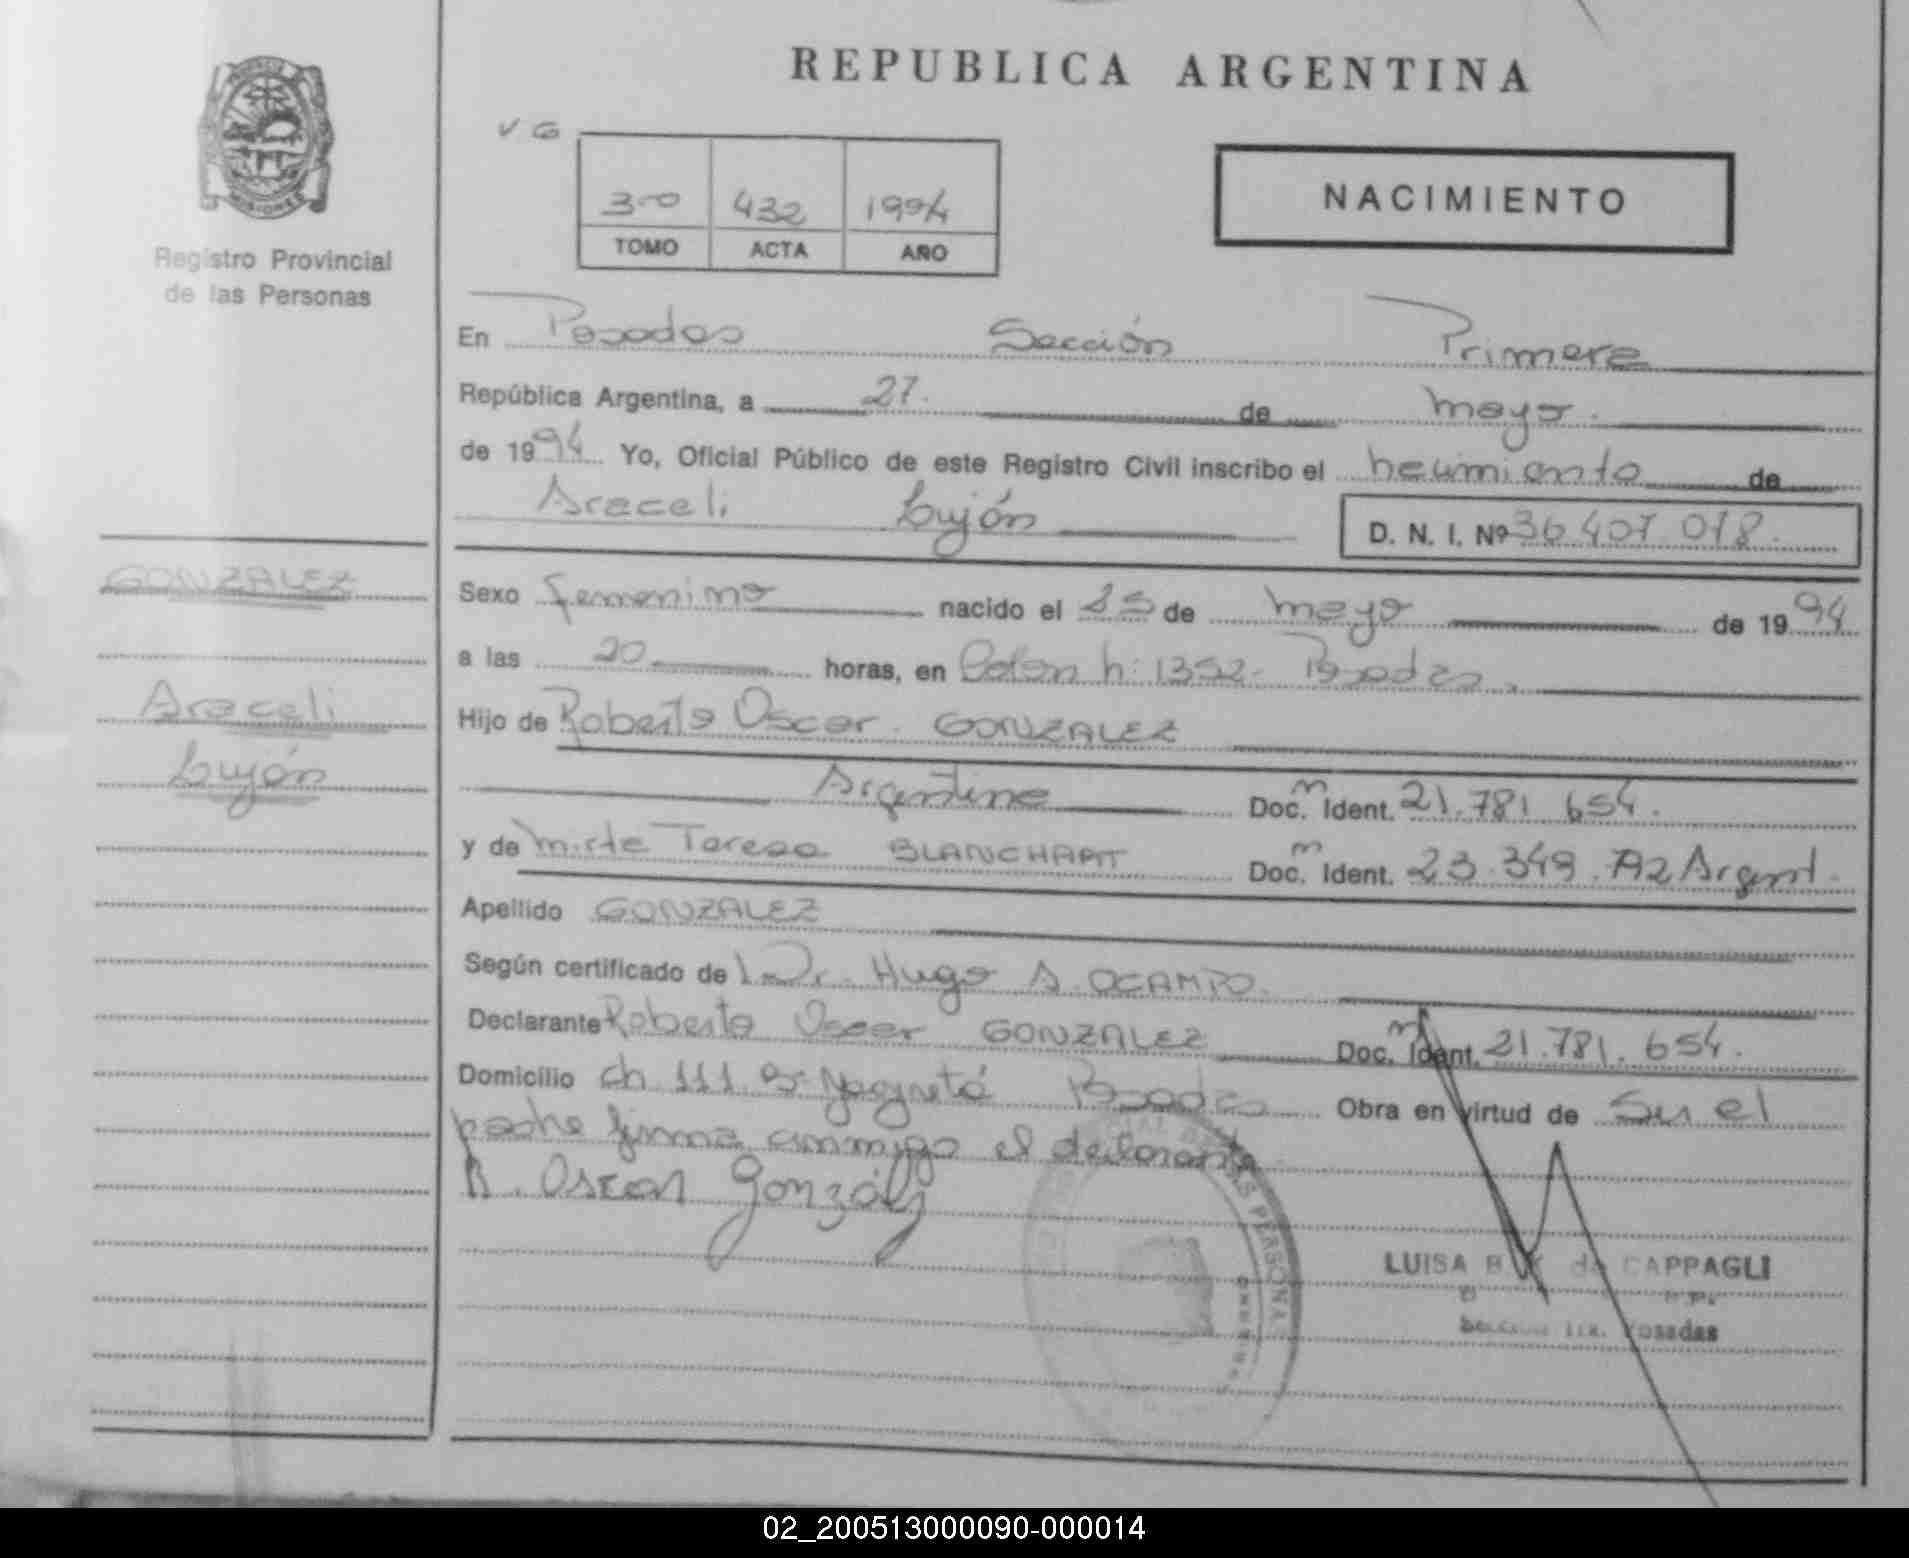 REPUBLICA ARGENTINA
MISIONES
Registro Provincial
de las Personas
V G
3-0 432 1994
TOMO ACTA AÑO
NACIMIENTO
En Posadas Sección Primera
República Argentina, a 27. de mayo.
de 1994 Yo, Oficial Público de este Registro Civil inscribo el nacimiento de
Araceli Luján
D. N. I. Nº 36 407 078.
GONZALEZ
Araceli
Luján
Sexo femenino nacido el 25 de mayo de 1994
a las 20 horas, en Colon n: 1352- Posadas.
Hijo de Roberto Oscar GONZALEZ
Argentino Doc. m Ident. 21.781 654.
y de Mirta Teresa BLANCHART Doc. m Ident. 23.349.792 Argent.
Apellido GONZALEZ
Según certificado de l Dr. Hugo A. OCAMPO.
Declarante Roberto Oscar GONZALEZ Doc. m Ident. 21.781.654.
Domicilio ch 111 Yacyretá Posadas Obra en virtud de Su el
padre firma conmigo el declarante
R. Oscar González
LUISA B de CAPPAGLI
Posadas
02_200513000090-000014